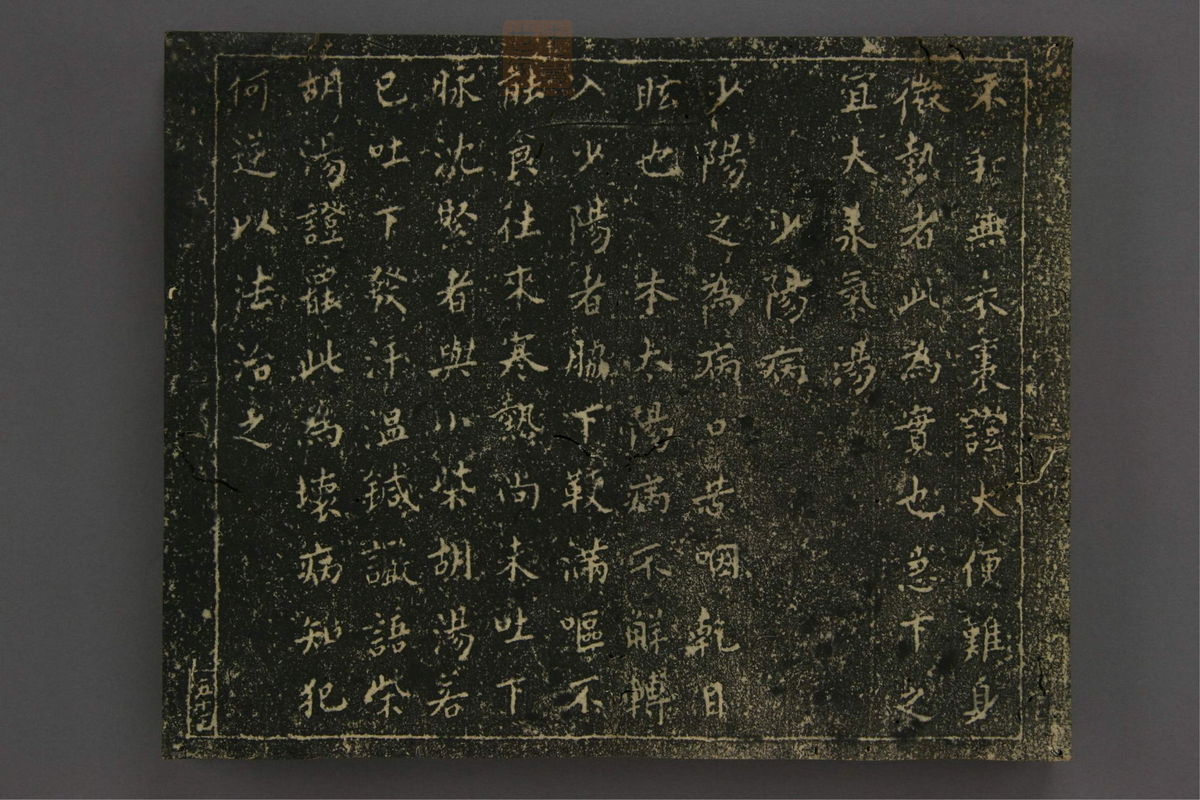 不和無表裏證大便難身
微熱者此為實也急下之
宜大承氣湯
少陽病
少陽之為病口苦咽乾目
眩也　本太陽病不解轉
入少陽者脇下鞕滿嘔不
能食往來寒熱尚未吐下
脉沈緊者與小柴胡湯若
已吐下發汗温鍼讝語柴
胡湯證罷此為壞病知犯
何逆以法治之